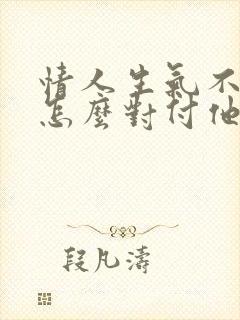 情人生氣不
怎麼對付他
段凡濤